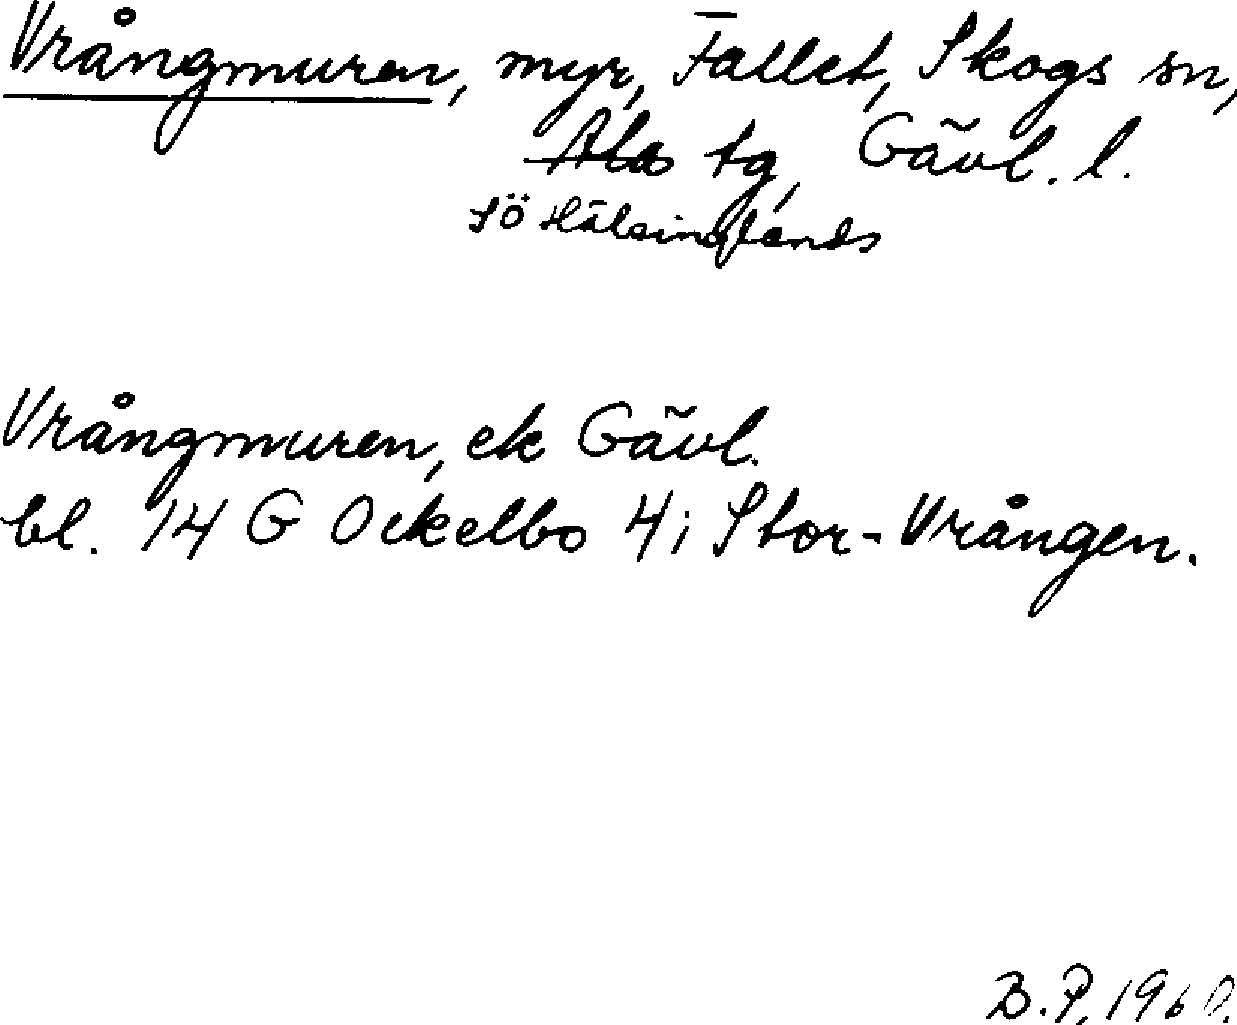 Vrångmuren, myr, Fallet, Skogs sn,
Ala tg, Gävl. l.
Sö Hälsinglands
Vrångmuren, ek Gävl.
bl. 14 G Ockelbo 4i Stor-Vrången.
B.P. 1960.